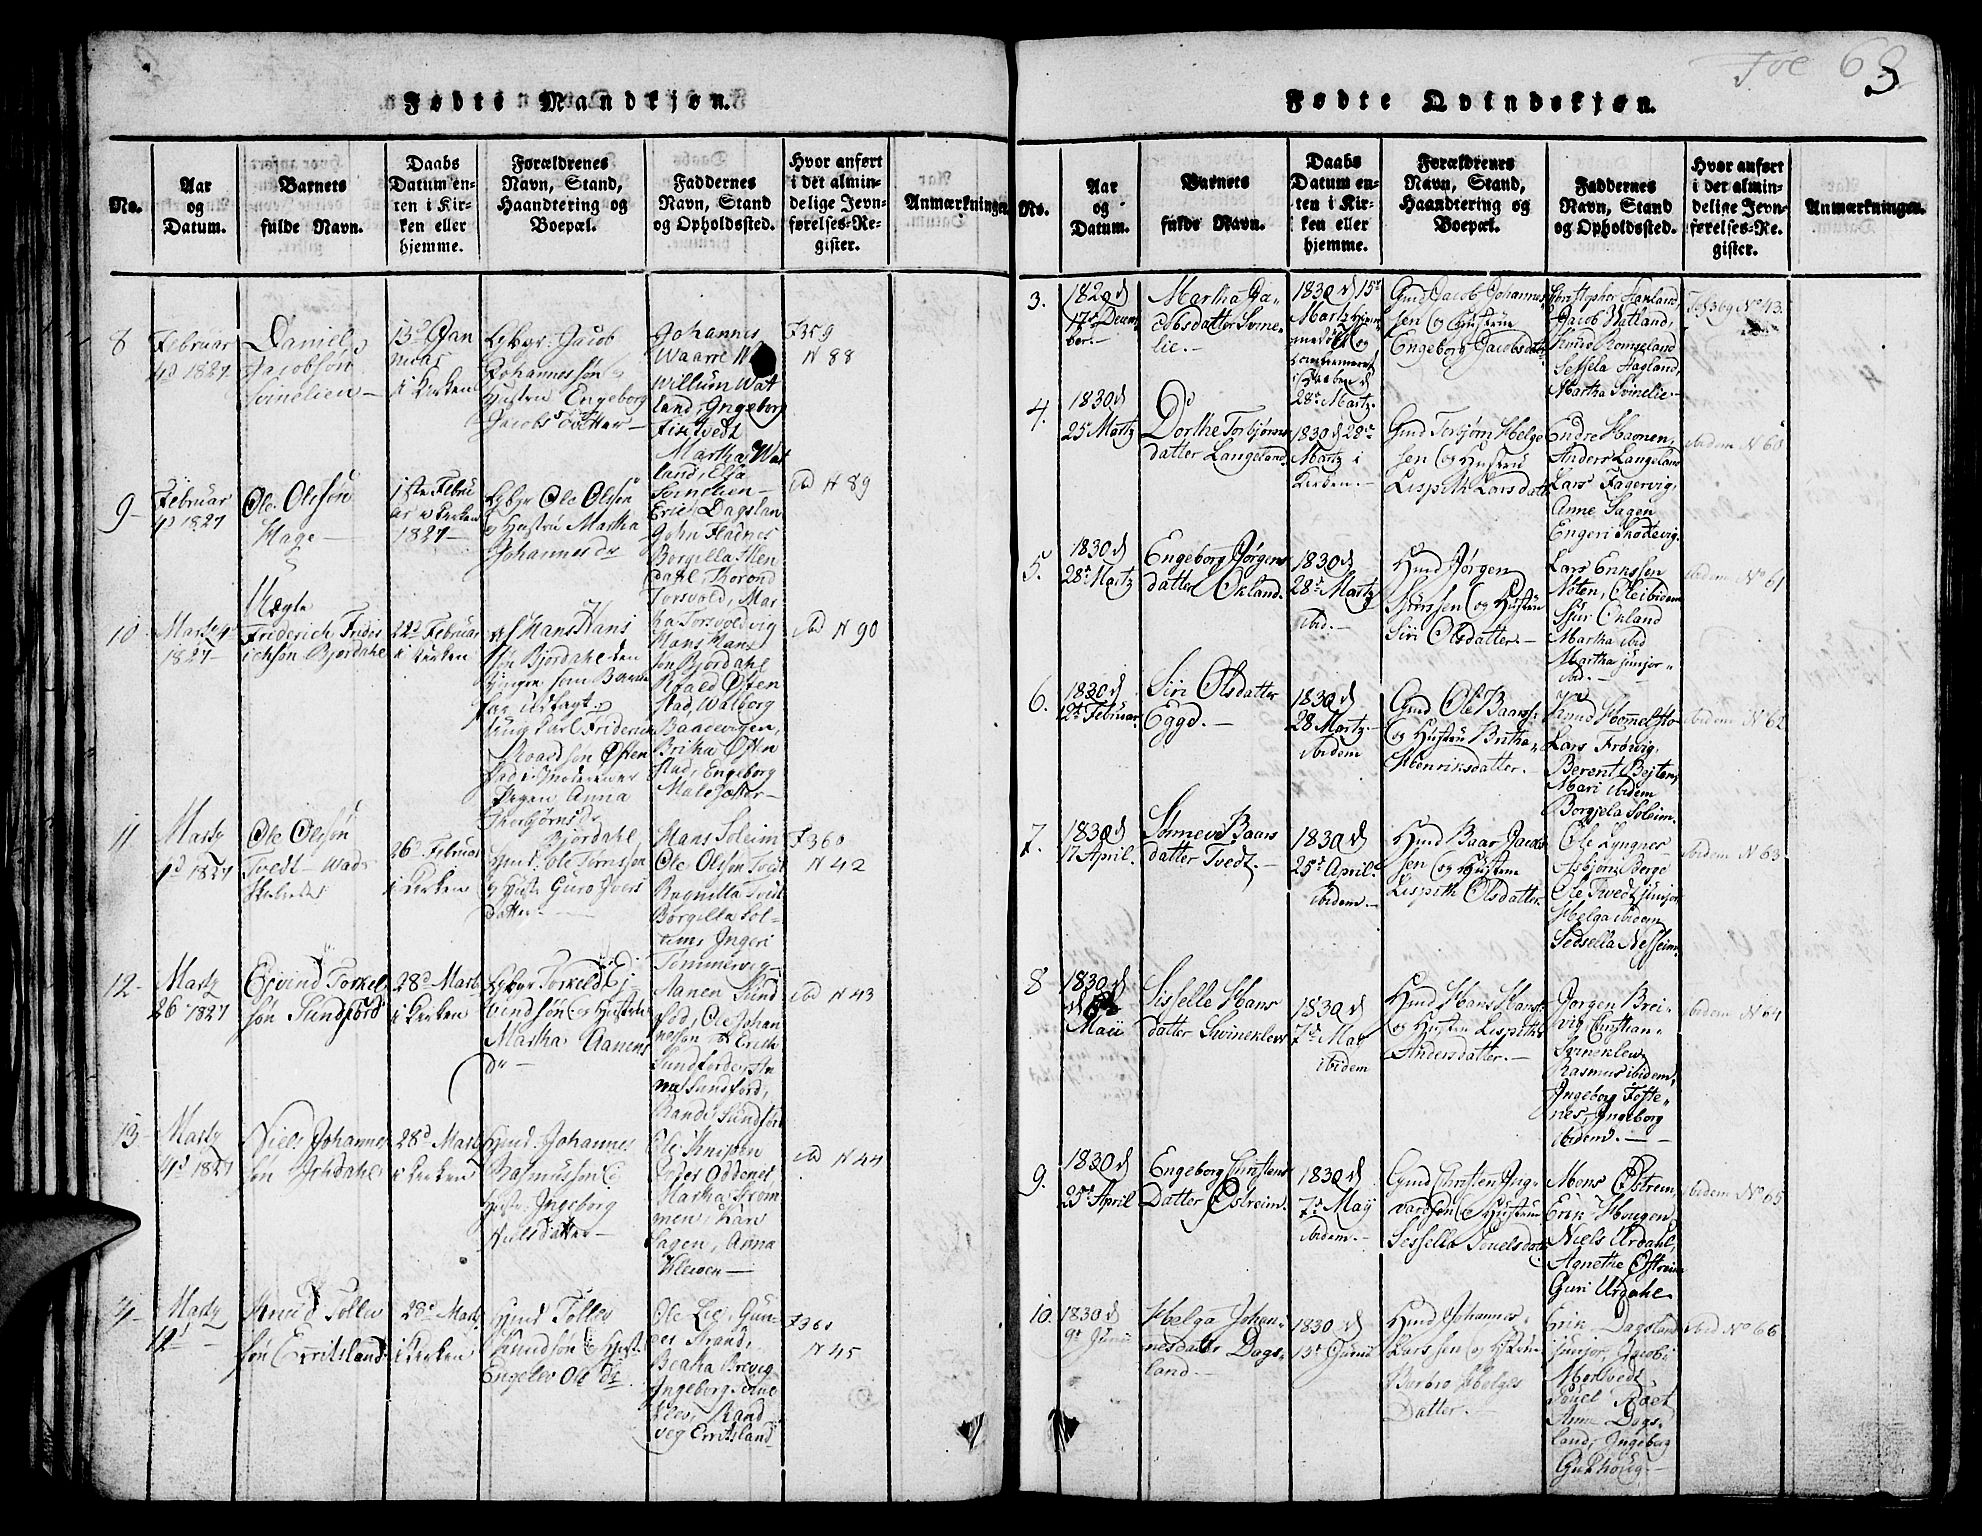 Fol 68
3
Fødte Mandkjøn.
No.
Aar
og
Datum.
Barnets
fulde Navn.
Daabs
Datum en-
ten i Kir-
ken eller
hjemme.
Forældrenes
Navn, Stand,
Haandtering og
Boepæl.
Faddernes
Navn, Stand
og Opholdssted.
Hvor anført
i det almin-
delige Jevn-
førelses-Re-
gister.
Anmærkninger.
8
Februar
4d 1827
Daniel
Jacobsøn
Svinelien
13d Jan
i Kirken
Jacob
Johannessøn
Hustru Engeborg
Jacobsdatter
Johannes
Waarre
Willum Wat
land, Ingeborg
Tistvedt
Martha Wat
land, Elsa
Svinelien
F 359
N 88
9
Februar
4d 1827
Ole Olssøn
Hage
1ste Febru
ar i Kirken
1827
Ole Olssøn
og Hustru Martha
Johannesdr
Erich Dagslan
John Fladnes
Borgilla Hen
dahl, Borond
Torsvold, Mar
tha Torsvoldvig
ibd N 89
10
Marty 4
1827
Uægte
Friderich Frider
ichsøn Bjørdahl
22d Februar
i Kirken
af Hans Hans
søn Bjordahl den
yngre som Barne
far udlagt
ung karl Friderich
Roaldsøn Østen
stad i
Anna
Thorbjørnsdr
Bjordahl
Hans Hans
søn Bjordahl
Roald Østen
stad, Walborg
Baadevigen,
Britha Østen
stad, Engeborg
Malesætter
ibd N 90
11
Marty
1d 1827
Ole Olsøn
Tvedt Wads
26d Februar
i Kirken
Gmd: Ole Tornssøn
og Hust: Guro Ivers
datter
Hans Soleim
Ole Olsøn Tvedt
Ragnilla Tvedt
Borgilla Sol-
eims Ingeri
Tommervig
F 360
N 42
12
Marty
26 1827
Ejvind Torkel
søn Sundford
28d Mart
i Kirken
Torkeld Ej-
vindsøn og Hustru
Martha Aanens
dr
Aanen Sund
ford, Ole Johan
nessøn Erich
Sundford
Sundford,
Randi Sundford
ibd N 43
13
Marty
4d 1827
Niels Johannes
søn Jrhdahl
28d Marty
i Kirken
Gmd: Johannes
Rasmussøn og
Hust: Ingeborg
Nielsdatter
Ole Knudsen
Peder Oddenes
Martha Trom
men, Kari
Hagen, Anna
Kleven
ibd N 44
Marty
12d
Knud Tollev
søn Erritsland
28d Marty
i Kirken
Gmd Tollev
Knudsøn & Hust
Engelev Ole dr
Ole Lie, Gun-
der Strand,
Beatha Brevig
Ingeborg Svine
klev, Rand
veg Erritsland
F 361
N 45
Fødte Qvindekjøn.
No.
Aar
og
Datum.
Barnets
fulde Navn.
Daabs
Datum en-
ten i Kir-
ken eller
hjemme.
Forældrenes
Navn, Stand,
Haandtering og
Boepæl.
Faddernes
Navn, Stand
og Opholdssted.
Hvor anført
i det almin-
delige Jevn-
førelses-Re-
gister.
Anmærkninger.
3.
1829 d
17de Decem
ber.
Martha Ja-
cobsdatter Svine-
lie.
1830 d 15de
Martz hjem-
medøbt og
confirmeret
i Kirken d
28de Martz.
Gmd Jacob Johannes
sen og Hustrue
Engeborg Jacobsdatt
Christopher Hanland,
Jacob Watland,
Knud Romseland
Sessela Hagland,
Martha Svinelie
Fol 369 No 43.
4.
1830 d
25de Martz
Dorthe Torbjørns
datter Langeland.
1830 d 28de
Martz i
Kirken.
Gmd Torbjørn Helge
sen og Hustrue
Lispith Larsdatt
Endre Haanen,
Anders Langeland
Lars Fagervig,
Anne Hagen
Engeri Skodevig.
ibidem N 60
5.
1830 d
28de Martz
Engeborg Jørgens
datter Økland.
1830 d
28de Martz
ibid.
Hmd Jørgen
Sjurssen og Hustrue
Siri Olsdatter.
Lars Erikssen
Noten, Ole ibidem
Sjur Økland
Martha ibid
Martha junjor
ibd.
ibidem No 61
6.
1830 d
12te Februar
Siri Olsdatter
Eggd.
1830 d
28 Martz
ibidem
Gmd Ole Baars-
og Hustrue Britha
Henriksdatter.
Knud Hommelsto
Lars Frøvig,
Berent Bejtem,
Mari ibidem
Borgjela Soleim.
ibidem No 62
7.
1830 d
17 April.
Sønneve Baars
datter Tvedt.
1830 d
25de April.
ibidem.
Hmd Baar Jacob
sen og Hustrue
Lispith Olsdatter.
Ole Lyngnes
Asbjørn Berge
Ole Tvedt junjor
Helga ibidem
Sedsella Nesheim.
ibidem N 63
8
1830 d
Maii
Sisselle Hans
datter Swineklev
1830 d
7de May
ibidem
Hmd Hans Hans-
og Hustru Lispith
Andersdatter.
Jørgen Brei-
vig Christian
Svineklev
Rasmus ibidem,
Ingeborg Tofte-
nes, Ingeborg
ibidem.
ibidem N 64
9.
1830 d
25de April
Engeborg Christens
Datter Østreim.
1830 d
7de Maij
ibidem.
Gmd Christen Ing-
vardsen & Hustrue
Sessella Jouelsdatt
Mons Østrem,
Erik Hougen
Niels Urdahl,
Agnethe Østreim
Guri Urdahl.
ibidem No 65
10.
1830 d
9de Junii
Helga Johan-
nesdatter Dags-
land.
1830 d
13de Junii
Hmd Johannes
Larssen og Hustrue
Barbro Helges
Datter.
Erik Dagsland
junjor, Jacob
Mortvedt
Jouel
Anne Dags-
land, Ingeborg
ibid No 66